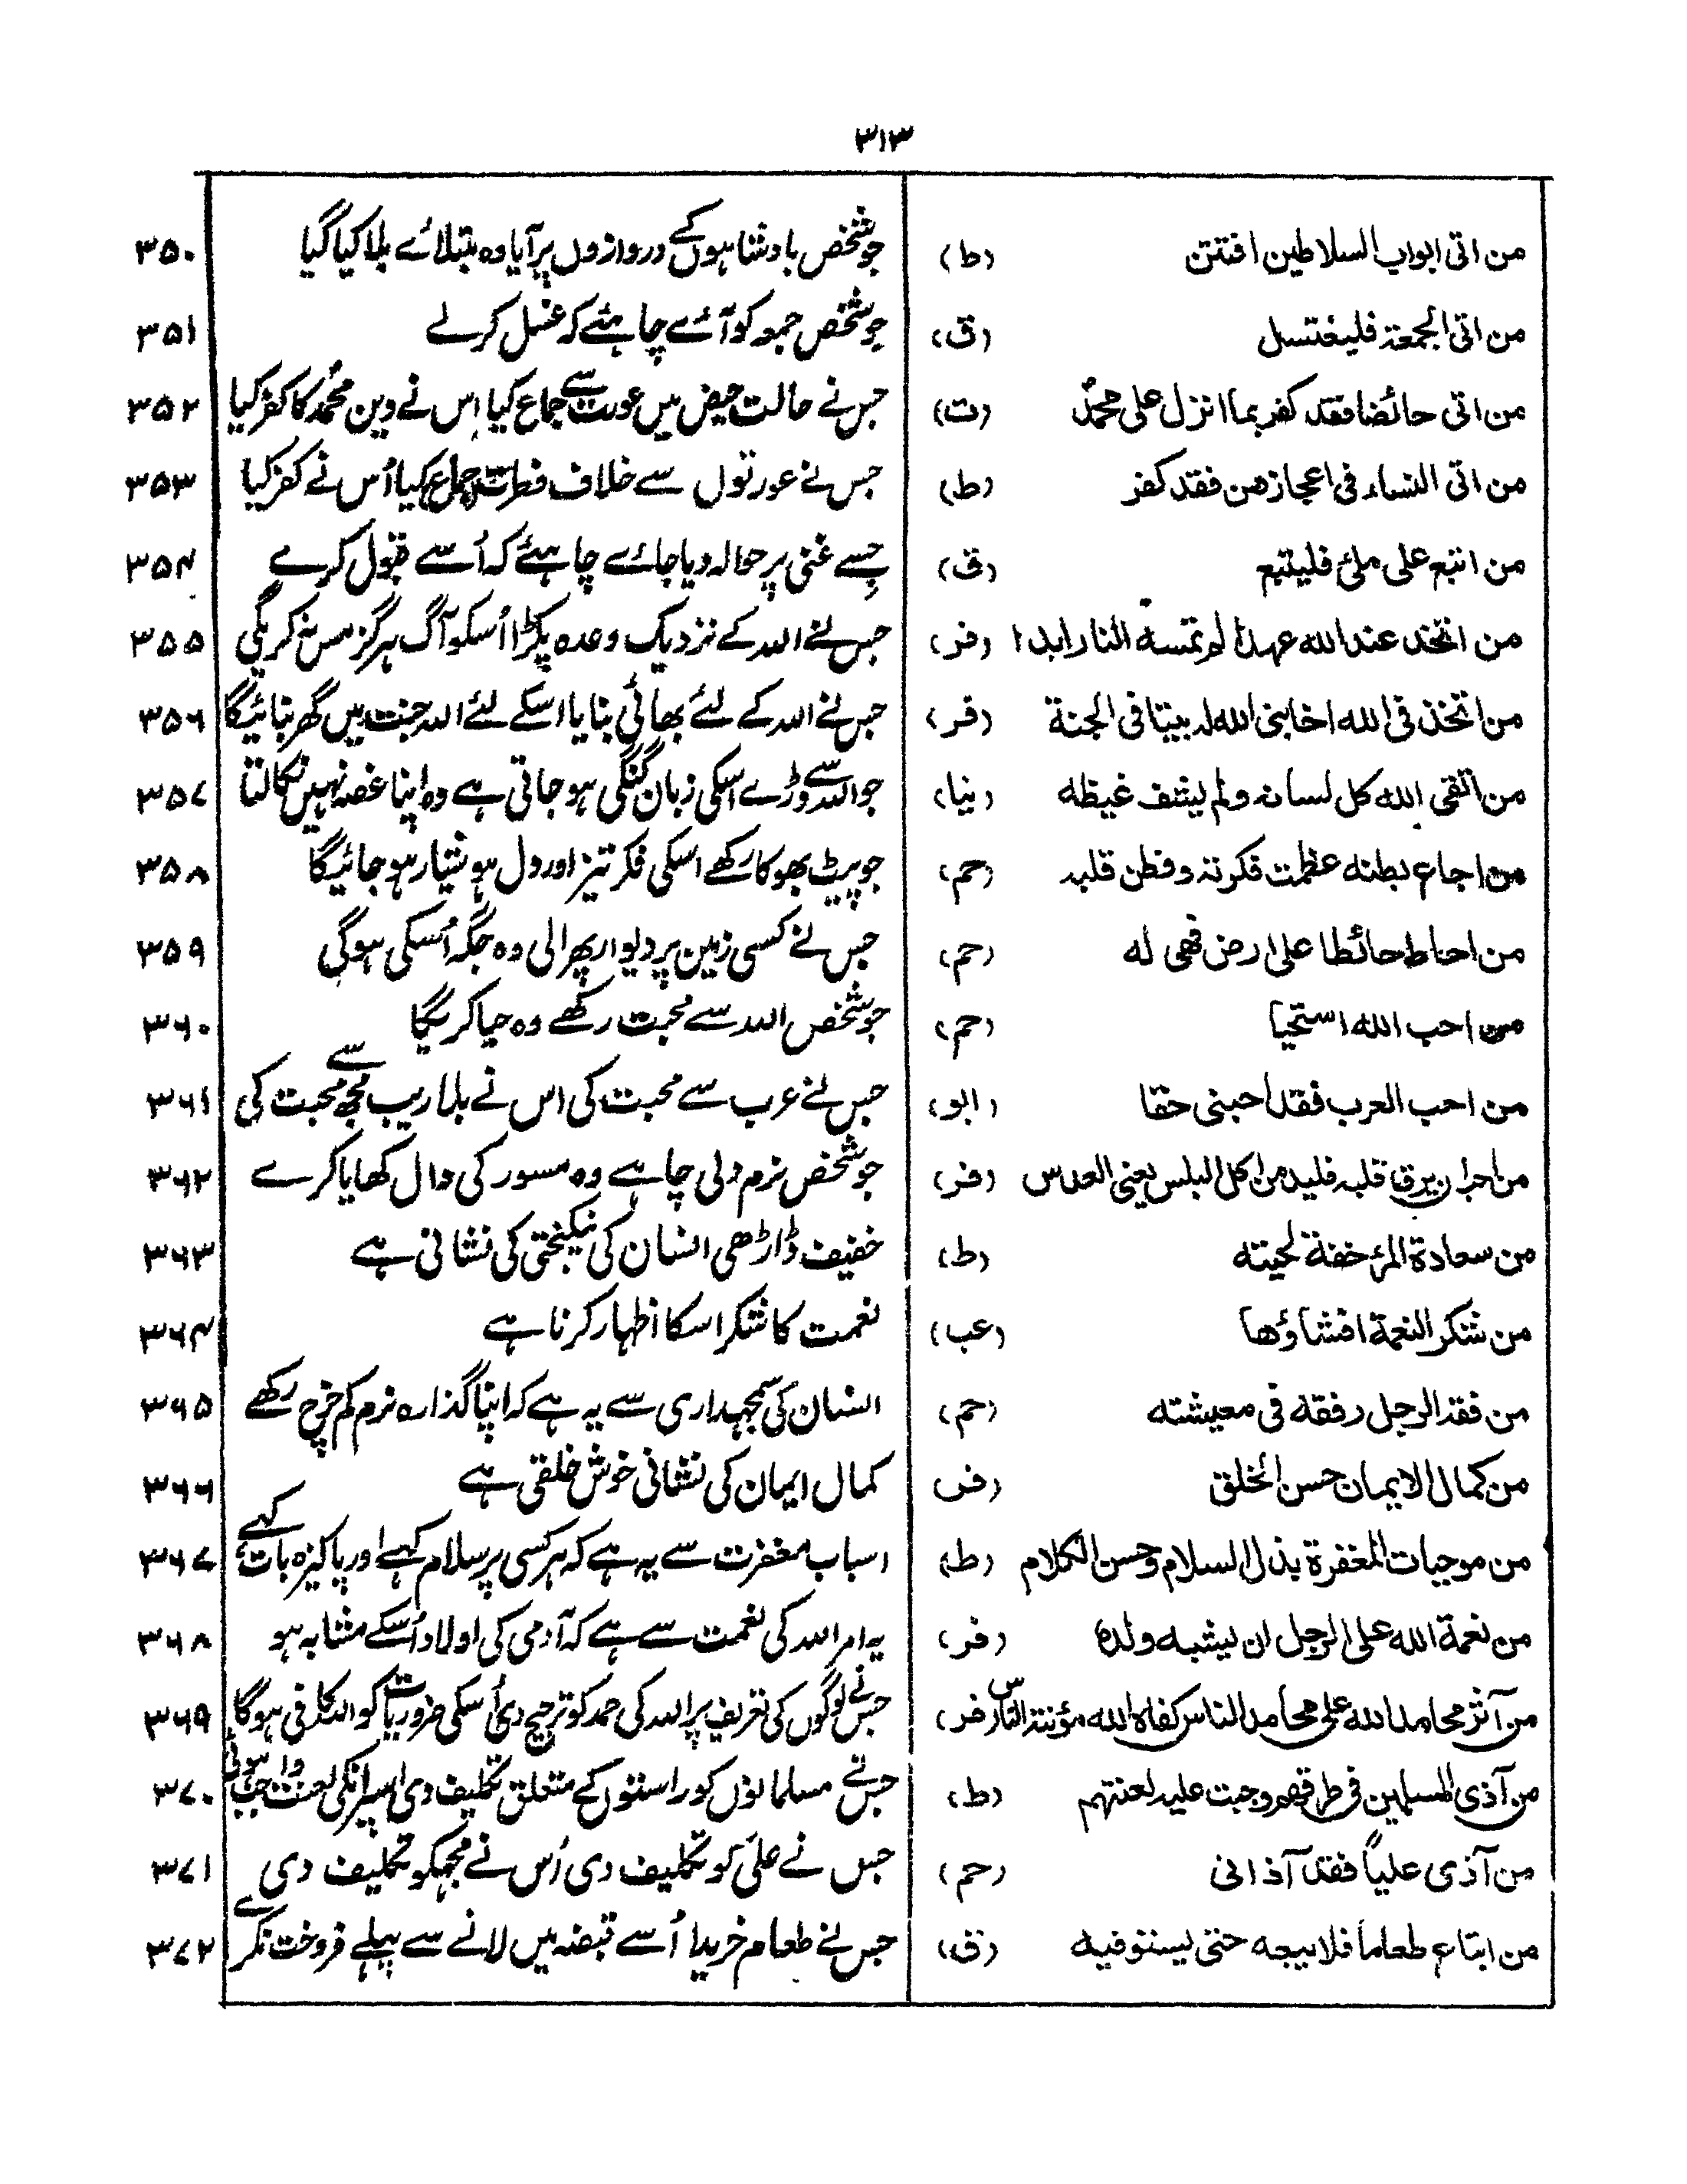 ۳۱۳
من اتى ابواب السلاطين افتتن (ط) جو شخص بادشاہوں کے دروازوں پر آیا وہ مبتلائے بلا کیا گیا ۳۵۰
من اتى الجمعة فليغتسل (ق) جو شخص جمعہ کو آئے چاہئے کہ غسل کرلے ۳۵۱
من اتى حائضا فقد كفر بما انزل على محمدؐ (ت) جس نے حالت حیض میں عورت سے جماع کیا اس نے دین محمدؐ کا کفر کیا ۳۵۲
من اتى النساء فى اعجازهن فقد كفر (ط) جس نے عورتوں سے خلاف فطرت جماع کیا اُس نے کفر کیا ۳۵۳
من اتبع على ملئ فليتبع (ق) جسے غنی پر حوالہ دیا جائے چاہئے کہ اُسے قبول کرے ۳۵۴
من اتخذ عند الله عهدا لم تمسه النار ابدا (فر) جس نے اللہ کے نزدیک وعدہ پکڑا اُسکو آگ ہرگز مس نہ کریگی ۳۵۵
من اتخذ فى الله اخا بنى الله له بيتا فى الجنة (فر) جس نے اللہ کے لئے بھائی بنایا اسکے لئے اللہ جنت میں گھر بنائیگا ۳۵۶
من اتقى الله كل لسانه ولم يشف غيظه (نیا) جو اللہ سے ڈرے اسکی زبان گنگی ہو جاتی ہے وہ اپنا غصہ نہیں نکالتا ۳۵۷
من اجاع بطنه عظمت فكرته وفطن قلبه (حم) جو پیٹ بھوکا رکھے اسکی فکر تیز اور دل ہوشیار ہو جائیگا ۳۵۸
من احاط حائطا على ارض فهى له (حم) جس نے کسی زمین پر دیوار پھرالی وہ جگہ اُسکی ہوگی ۳۵۹
من احب الله استحيا (حم) جو شخص اللہ سے محبت رکھے وہ حیا کریگا ۳۶۰
من احب العرب فقد احبنى حقا (ابو) جس نے عرب سے محبت کی اس نے بلاریب مجھ سے محبت کی ۳۶۱
من احب ان يرق قلبه فليدمن اكل البلس يعنى العدس (فر) جو شخص نرم دلی چاہے وہ مسور کی دال کھایا کرے ۳۶۲
من سعادة المرء خفة لحيته (ط) خفیف ڈاڑھی انسان کی نیکبختی کی نشانی ہے ۳۶۳
من شكر النعمة افشاؤها (عب) نعمت کا شکر اسکا اظہار کرنا ہے ۳۶۴
من فقه الرجل رفقه فى معيشته (حم) انسان کی سمجہداری سے یہ ہے کہ اپنا گذارہ نرم کم خرچ رکھے ۳۶۵
من كمال الايمان حسن الخلق (فر) کمال ایمان کی نشانی خوش خلقی ہے ۳۶۶
من موجبات المغفرة بذل السلام وحسن الكلام (ط) اسباب مغفرت سے یہ ہے کہ ہر کسی پر سلام کہے اور پاکیزہ بات کہے ۳۶۷
من نعمة الله على الرجل ان يشبه ولده (فر) یہ امر اللہ کی نعمت سے ہے کہ آدمی کی اولاد اُسکے مشابہ ہو ۳۶۸
من آثر محامد الله على محامد الناس كفاه الله مؤنة الناس (فر) جس نے لوگوں کی تعریف پر اللہ کی حمد کو ترجیح دی اُسکی ضروریات کو اللہ کافی ہوگا ۳۶۹
من آذى المسلمين فى طرقهم وجبت عليه لعنتهم (ط) جس نے مسلمانوں کو راستوں کے متعلق تکلیف دی اسپر انکی لعنت واجب ہوئی ۳۷۰
من آذى علياً فقد آذانى (حم) جس نے علیؑ کو تکلیف دی اُس نے مجہکو تکلیف دی ۳۷۱
من ابتاع طعاماً فلا يبعه حتى يستوفيه (ق) جس نے طعام خریدا اُسے قبضہ میں لانے سے پہلے فروخت نکرے ۳۷۲